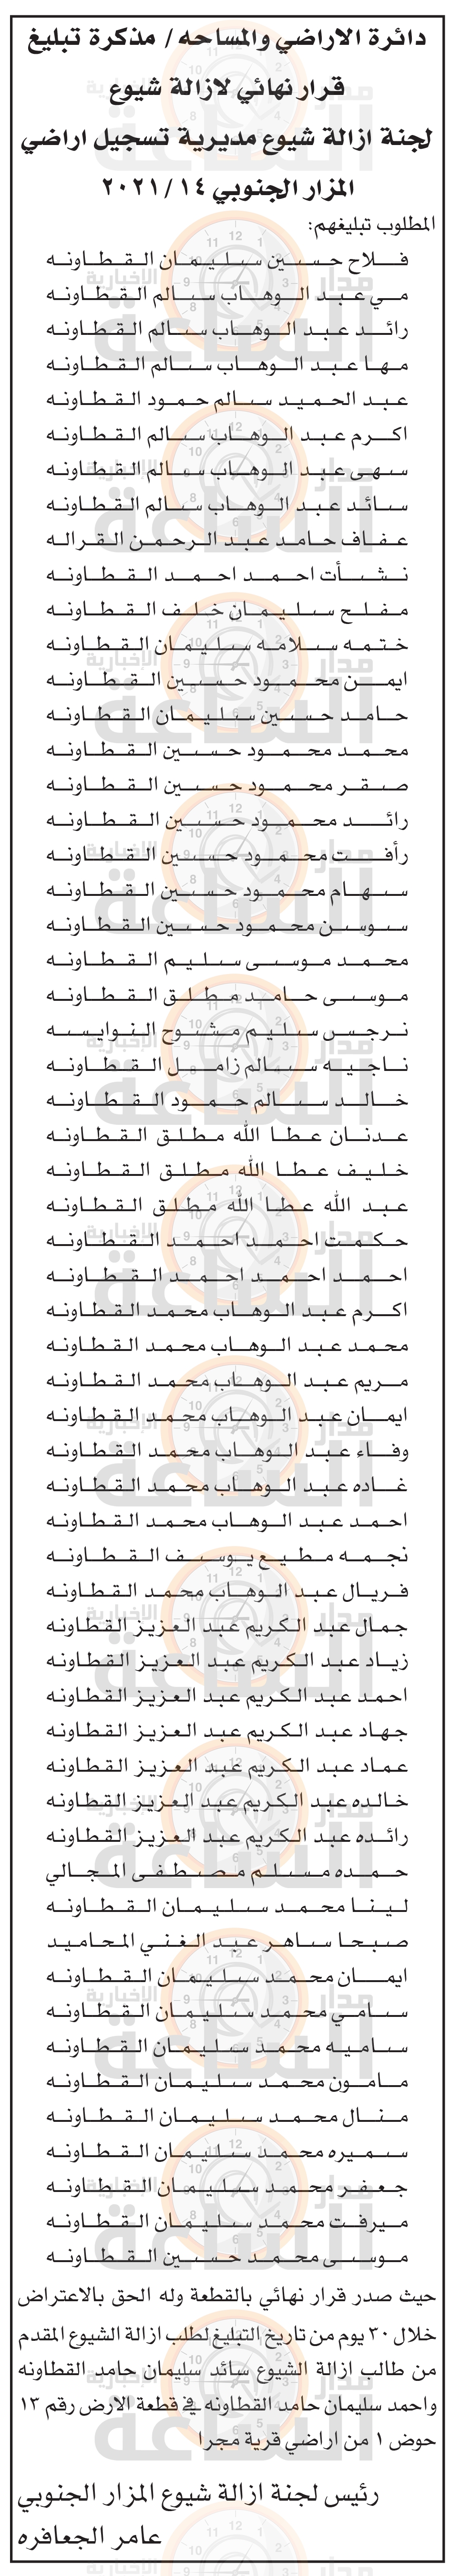 دائرة الاراضي والمساحه / مذكرة تبليغ
قرار نهائي لازالة شيوع
لجنة ازالة شيوع مديرية تسجيل اراضي
المزار الجنوبي ١٤ /٢٠٢١
المطلوب تبليغهم:
فلاح حسين سليمان القطاونه
مي عبد الوهاب سالم القطاونه
رائد عبد الوهاب سالم القطاونه
مها عبد الوهاب سالم القطاونه
عبد الحميد سالم حمود القطاونه
اكرم عبد الوهاب سالم القطاونه
سهى عبد الوهاب سالم القطاونه
سائد عبد الوهاب سالم القطاونه
عفاف حامد عبد الرحمن القراله
نشأت احمد احمد القطاونه
مفلح سليمان خلف القطاونه
ختمه سلامه سليمان القطاونه
ايمن محمود حسين القطاونه
حامد حسين سليمان القطاونه
محمد محمود حسين القطاونه
صقر محمود حسين القطاونه
رائد محمود حسين القطاونه
رأفت محمود حسين القطاونه
سهام محمود حسين القطاونه
سوسن محمود حسين القطاونه
محمد موسى سليم القطاونه
موسى حامد مطلق القطاونه
نرجس سليم مشوح النوايسه
ناجيه سالم زامل القطاونه
خالد سالم حمود القطاونه
عدنان عطا الله مطلق القطاونه
خليف عطا الله مطلق القطاونه
عبد الله عطا الله مطلق القطاونه
حكمت احمد احمد القطاونه
احمد احمد احمد القطاونه
اكرم عبد الوهاب محمد القطاونه
محمد عبد الوهاب محمد القطاونه
مريم عبد الوهاب محمد القطاونه
ايمان عبد الوهاب محمد القطاونه
وفاء عبد الوهاب محمد القطاونه
غاده عبد الوهاب محمد القطاونه
احمد عبد الوهاب محمد القطاونه
نجمه مطيع يوسف القطاونه
فريال عبد الوهاب محمد القطاونه
جمال عبد الكريم عبد العزيز القطاونه
زياد عبد الكريم عبد العزيز القطاونه
احمد عبد الكريم عبد العزيز القطاونه
جهاد عبد الكريم عبد العزيز القطاونه
عماد عبد الكريم عبد العزيز القطاونه
خالده عبد الكريم عبد العزيز القطاونه
رائده عبد الكريم عبد العزيز القطاونه
حمده مسلم مصطفى المجالي
لينا محمد سليمان القطاونه
صبحا ساهر عبد الغني المحاميد
ايمان محمد سليمان القطاونه
سامي محمد سليمان القطاونه
ساميه محمد سليمان القطاونه
مامون محمد سليمان القطاونه
منال محمد سليمان القطاونه
سميره محمد سليمان القطاونه
جعفر محمد سليمان القطاونه
ميرفت محمد سليمان القطاونه
موسى محمد حسين القطاونه
حيث صدر قرار نهائي بالقطعة وله الحق بالاعتراض
خلال ٣٠ يوم من تاريخ التبليغ لطلب ازالة الشيوع المقدم
من طالب ازالة الشيوع سائد سليمان حامد القطاونه
واحمد سليمان حامد القطاونه في قطعة الارض رقم ١٣
حوض ١ من اراضي قرية مجرا
رئيس لجنة ازالة شيوع المزار الجنوبي
عامر الجعافره